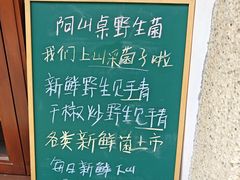 阿山桌野生菌
我们上山采菌子啦
新鲜野生见手青
干椒炒野生见手青
各类新鲜菌上市
每日新鲜